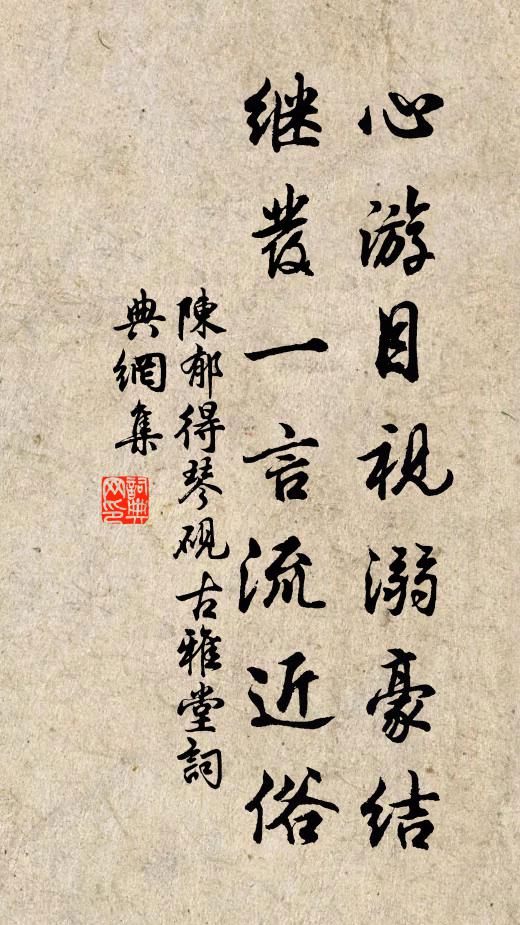 心游目视溺豪结
继发一言流近俗
陳郁得琴砚古雅堂詞
典網集
詞典
网印